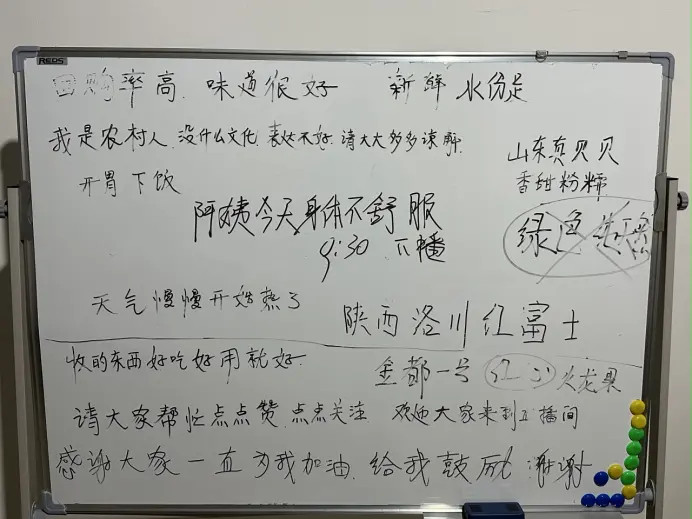 REDS
回购率高 味道很好 新鲜 水份足
我是农村人,没什么文化,表达不好.请大大多多谅解
山东真贝贝
开胃下饭
香甜粉糯
阿姨今天身体不舒服
绿色
9:30 下播
天气慢慢开始热了
陕西洛川红富士
收的东西好吃好用就好
金都一号 红心火龙果
请大家帮忙点点赞 点点关注 欢迎大家来到直播间
感谢大家一直为我加油.给我鼓励 谢谢